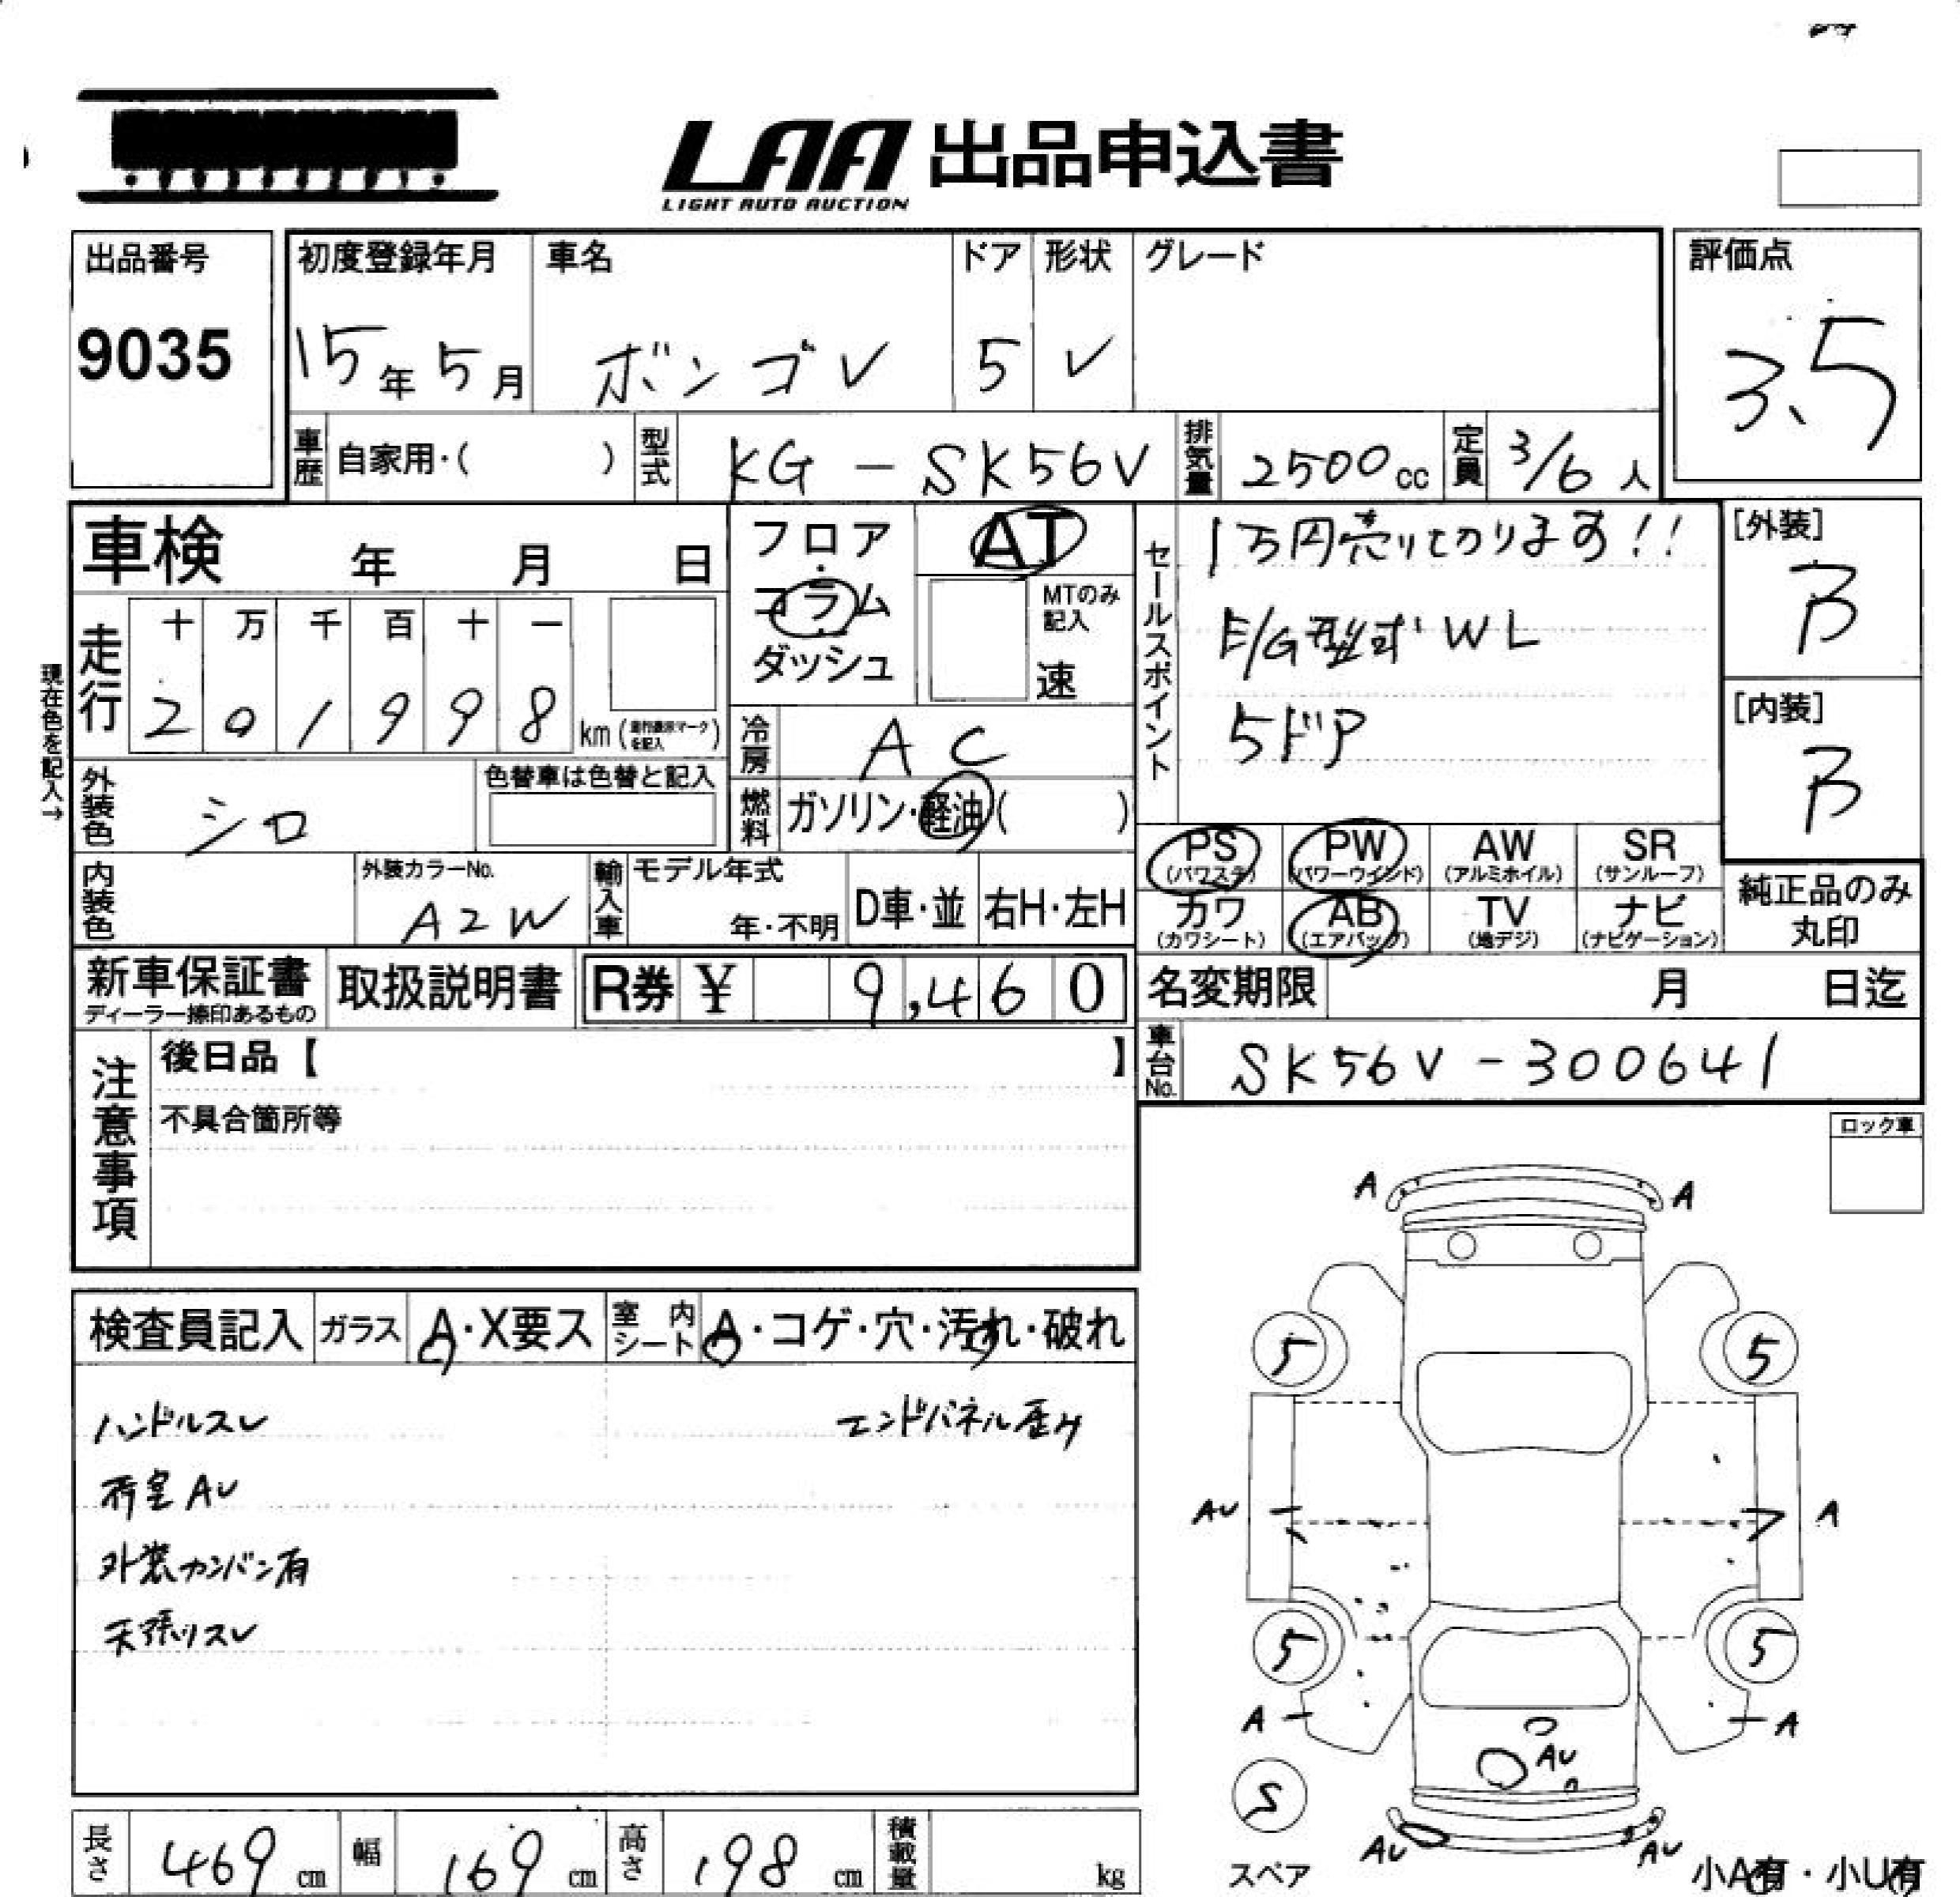 LAA 出品申込書
LIGHT AUTO AUCTION
出品番号
9035
初度登録年月
15年5月
車名
ボンゴV
ドア
5
形状
V
グレード
評価点
3.5
車歴
自家用・( )
型式
KG-SK56V
排気量
2500cc
定員
3/6人
車検 年 月 日
フロア・コラム・ダッシュ
AT
MTのみ記入
速
セールスポイント
1万円売りきります!!
E/G型式 WL
5ドア
[外装]
B
[内装]
B
現在色を記入→
走行
十 万 千 百 十 一
2 0 1 9 9 8
km(走行表示マークを記入)
冷房
AC
燃料
ガソリン・軽油( )
外装色
シロ
色替車は色替と記入
PS
(パワステ)
PW
(パワーウインド)
AW
(アルミホイル)
SR
(サンルーフ)
カワ
(カワシート)
AB
(エアバッグ)
TV
(地デジ)
ナビ
(ナビゲーション)
純正品のみ
丸印
内装色
外装カラーNo.
A2W
輸入車
モデル年式
年・不明
D車・並
右H・左H
新車保証書
ディーラー捺印あるもの
取扱説明書
R券 ¥ 9,460
名変期限 月 日迄
車台No.
SK56V-300641
注意事項
後日品【 】
不具合箇所等
ロック車
検査員記入
ガラス
A・X要ス
室内シート
A・コゲ・穴・汚れ・破れ
ハンドルスレ
エンドパネル歪み
荷室AU
外装カンバン有
天張リスレ
A
A
5
5
AU
A
5
5
A
A
AU
S
スペア
AU
AU
小A有・小U有
長さ
469cm
幅
169cm
高さ
198cm
積載量
kg